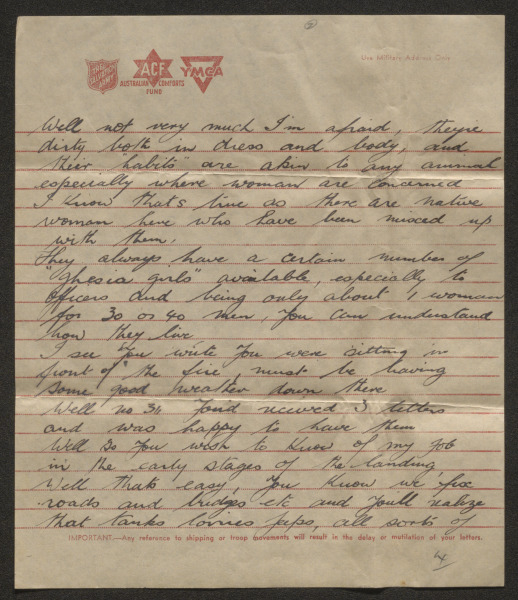 THE SALVATION ARMY
ACF
AUSTRALIAN COMFORTS FUND
YMCA
Use Military Address Only
Well not very much I'm afraid, they're
dirty both in dress and body, and
their "habits" are akin to any animal
especially where woman are concerned
I know that's true as there are native
woman here who have been mixed up
with them.
They always have a certain number of
girls" available, especially to
Officers and being only about 1 woman
for 30 or 40 men, You can understand
how they live
I see You write You were sitting in
front of the fire, must be having
some good weather down there
Well no 3 letters
and was happy to have them
Well so You wish to know of my job
in the early stages of the landing
Well thats easy, You know we fix
roads and bridges etc and You'll realize
that tanks lorries jeeps, all sorts of
IMPORTANT.—Any reference to shipping or troop movements will result in the delay or mutilation of your letters.